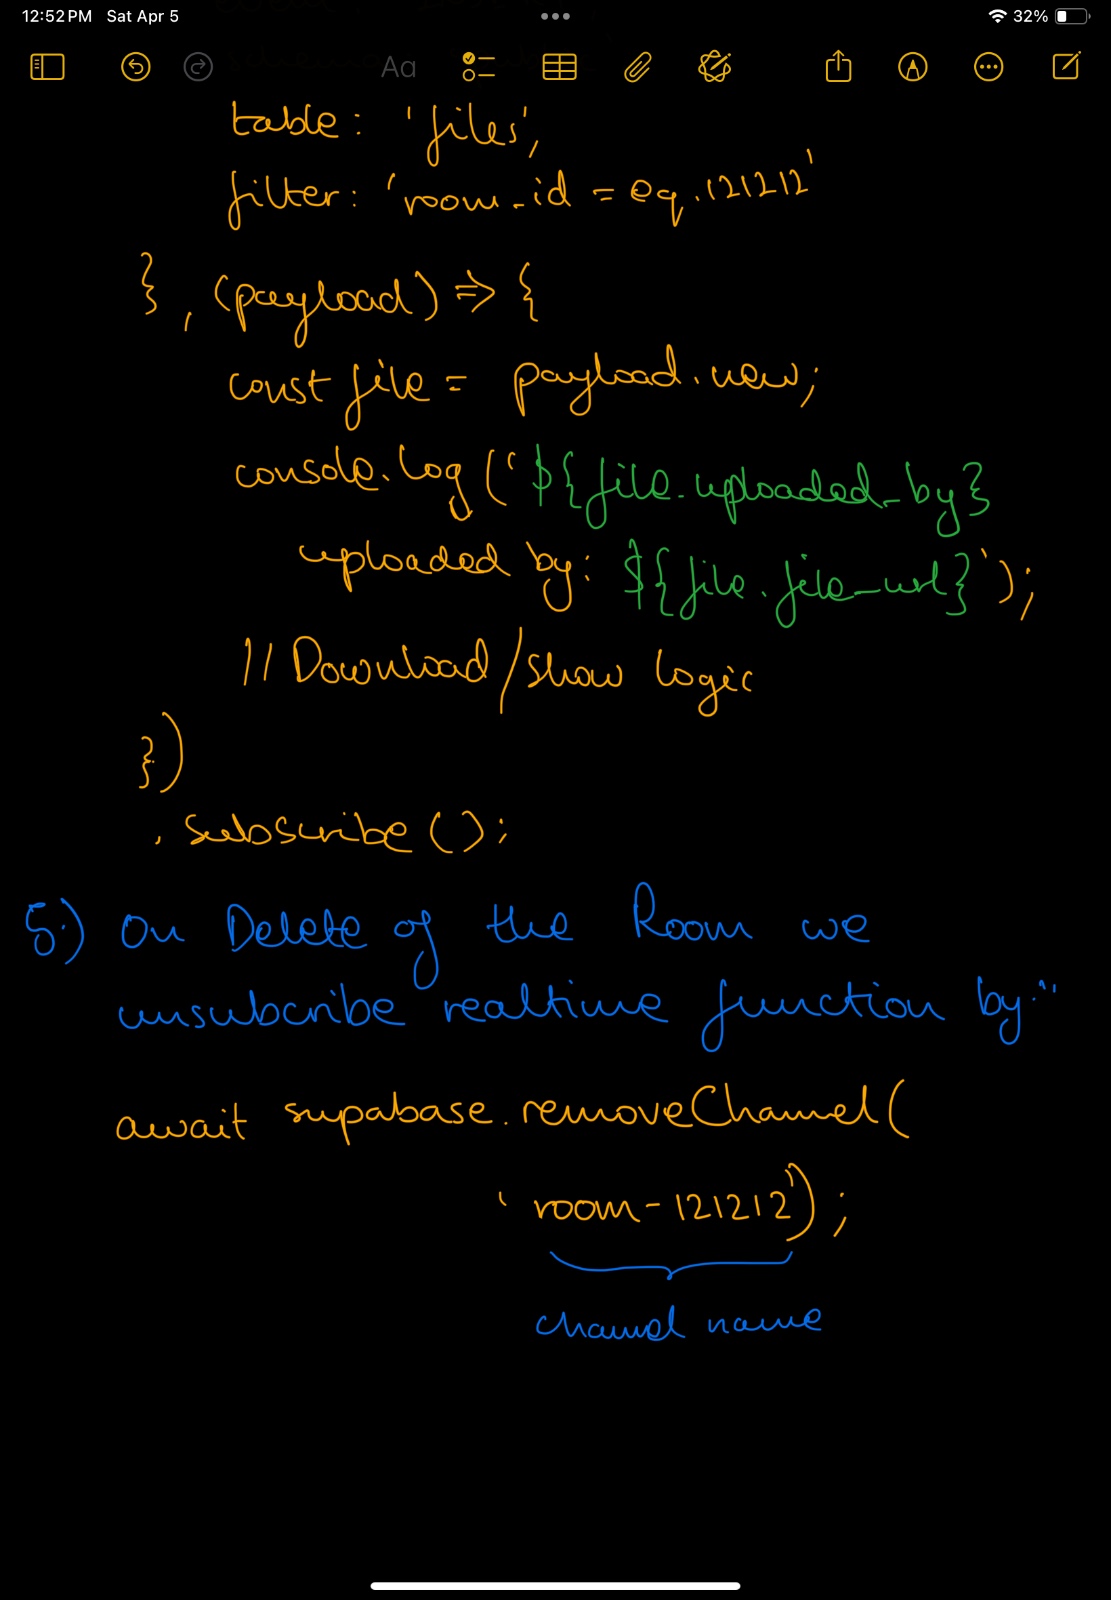 12:52 PM Sat Apr 5
32%
Aa
table: 'files',
filter: 'room_id = eq.121212'
}, (payload) => {
const file = payload.new;
console.log(`${file.uploaded_by}
uploaded by: ${file.file_url}`);
// Download/show logic
})
.subscribe();
5.) On Delete of the Room we
unsubcribe realtime function by:"
await supabase.removeChannel(
'room-121212');
channel name